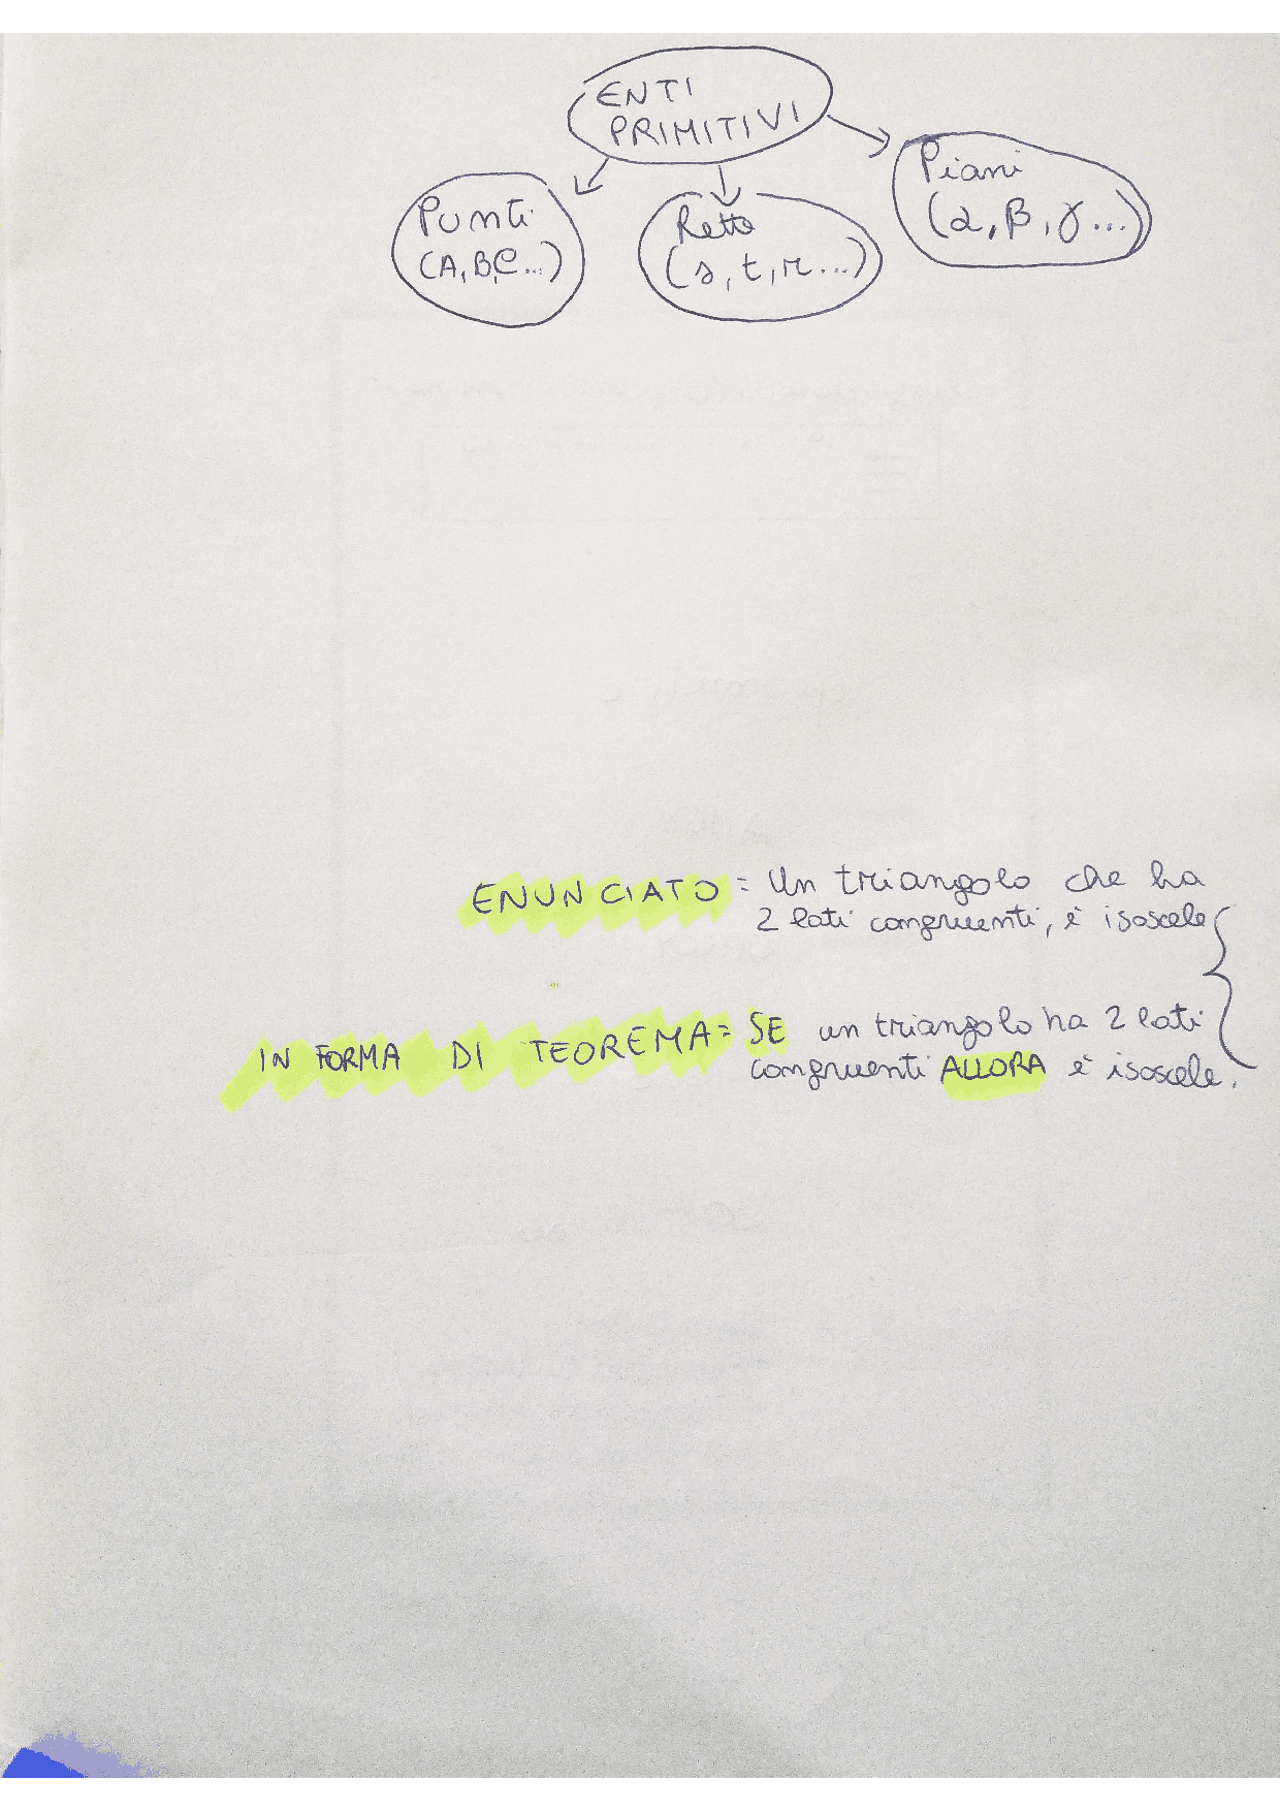 ENTI
PRIMITIVI
Punti
(A, B, C...)
Rette
(s, t, r...)
Piani
(α, β, γ...)
ENUNCIATO = Un triangolo che ha
2 lati congruenti, è isoscele
IN FORMA DI TEOREMA = SE un triangolo ha 2 lati
congruenti ALLORA è isoscele.